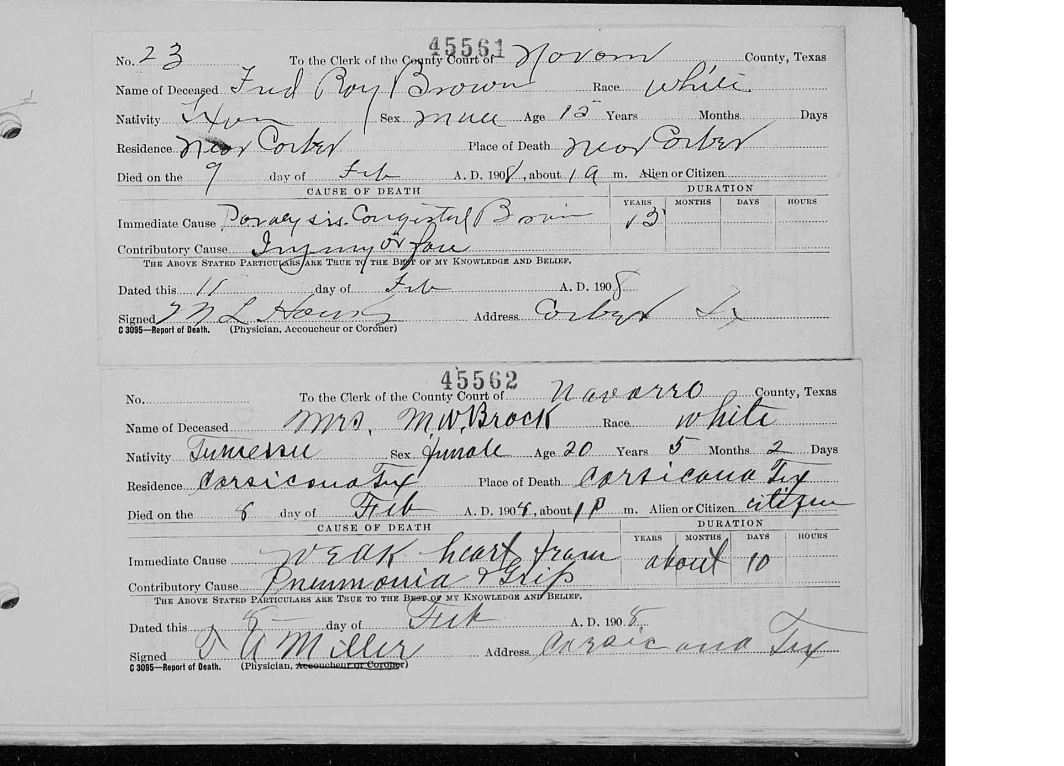 45561
No. 23 To the Clerk of the County Court of County, Texas
Name of Deceased Fred Roy Brown Race White
Nativity Sex Male Age 15 Years Months Days
Residence Near Corbet Place of Death Near Corbet
Died on the 9 day of Feb A. D. 1908, about 1 a m. Alien or Citizen
CAUSE OF DEATH DURATION
YEARS MONTHS DAYS HOURS
Immediate Cause Paralysis Brain
Contributory Cause
THE ABOVE STATED PARTICULARS ARE TRUE TO THE BEST OF MY KNOWLEDGE AND BELIEF.
Dated this 11 day of Feb A. D. 1908
Signed Address Corbet Tx
C 3095—Report of Death. (Physician, Accoucheur or Coroner)
45562
No. To the Clerk of the County Court of Navarro County, Texas
Name of Deceased Mrs. M.W. Brock Race White
Nativity Tunessee Sex female Age 20 Years 5 Months 2 Days
Residence Corsicana Tex Place of Death Corsicana Tex
Died on the 8 day of Feb A. D. 1908, about 1 P m. Alien or Citizen citizen
CAUSE OF DEATH DURATION
YEARS MONTHS DAYS HOURS
Immediate Cause Weak heart from about 10
Contributory Cause Pneumonia & Grip
THE ABOVE STATED PARTICULARS ARE TRUE TO THE BEST OF MY KNOWLEDGE AND BELIEF.
Dated this 8 day of Feb A. D. 1908
Signed Miller Address Corsicana Tex
C 3095—Report of Death. (Physician, Accoucheur or Coroner)